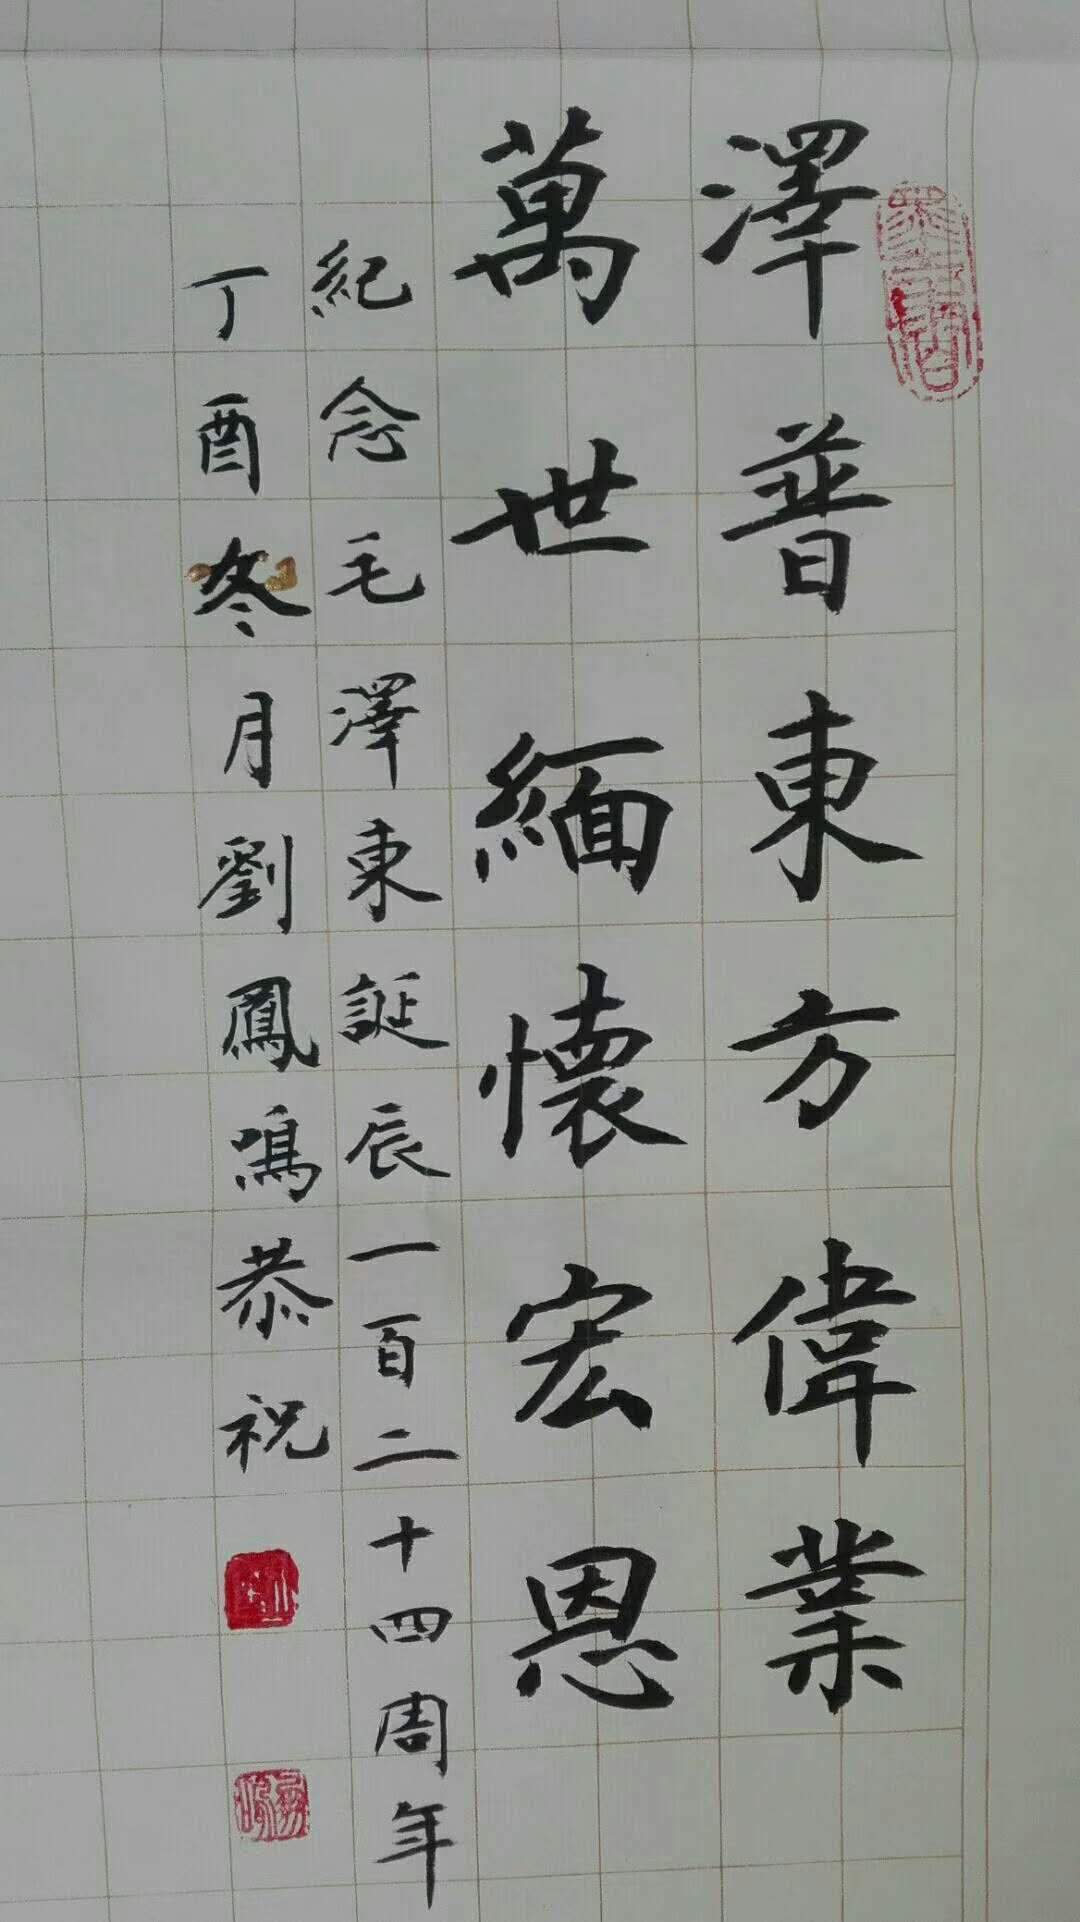 澤普東方偉業
萬世緬懷宏恩
紀念毛澤東誕辰一百二十四周年
丁酉冬月劉鳳鳴恭祝